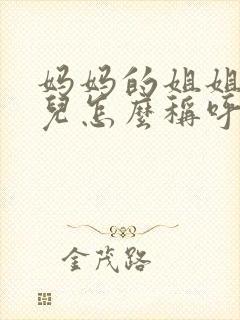 妈妈的姐姐
兒怎麼稱呼
金茂路